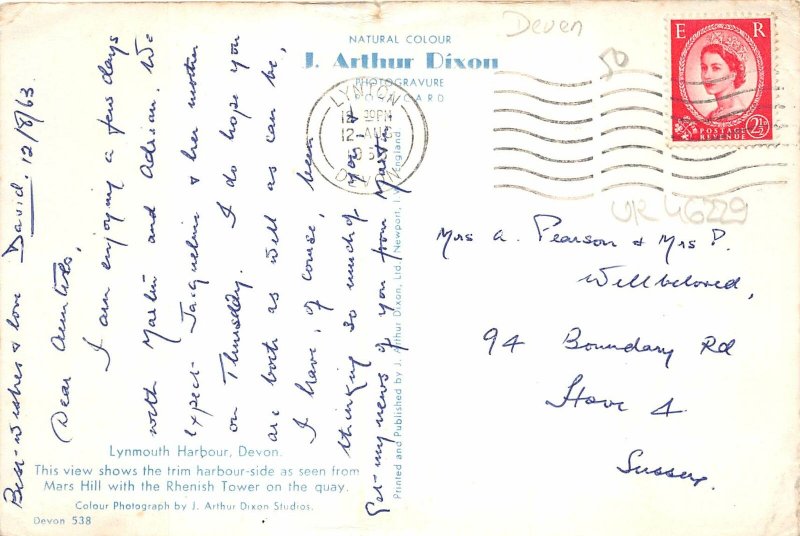 NATURAL COLOUR
J. Arthur Dixon
PHOTOGRAVURE
POSTCARD
Deven
50
E R
POSTAGE
REVENUE
2½
LYNTON
12-30PM
12-AUG
1963
DEVON
UK 46229
Dear Aunties,
I am enjoying a few days
with Martin and Adrian. We
expect Jacqueline & her mother
on Thursday. I do hope you
are both as well as can be,
I have, of course, been
thinking so much of you &
get my news of you from Martin.
Best wishes & love David. 12/8/63.
Mrs A. Pearson & Mrs P.
Wellbeloved,
94 Boundary Rd
Hove 4.
Sussex.
Printed and Published by J. Arthur Dixon, Ltd., Newport, I.W., England.
Lynmouth Harbour, Devon.
This view shows the trim harbour-side as seen from
Mars Hill with the Rhenish Tower on the quay.
Colour Photograph by J. Arthur Dixon Studios.
Devon 538